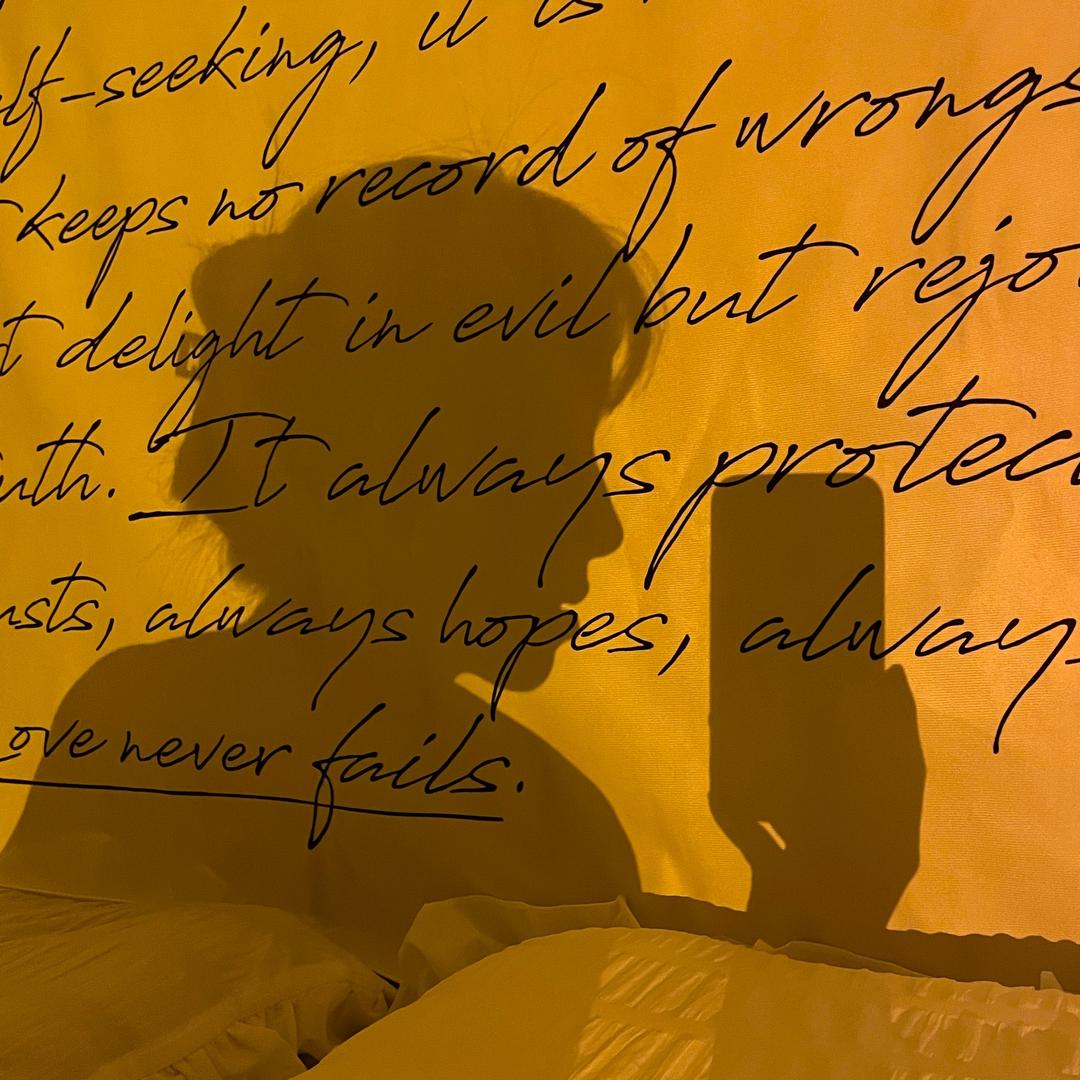 lf-seeking, it is
keeps no record of wrongs
t delight in evil but rejo
uth. It always protec
usts, always hopes, always
ove never fails.